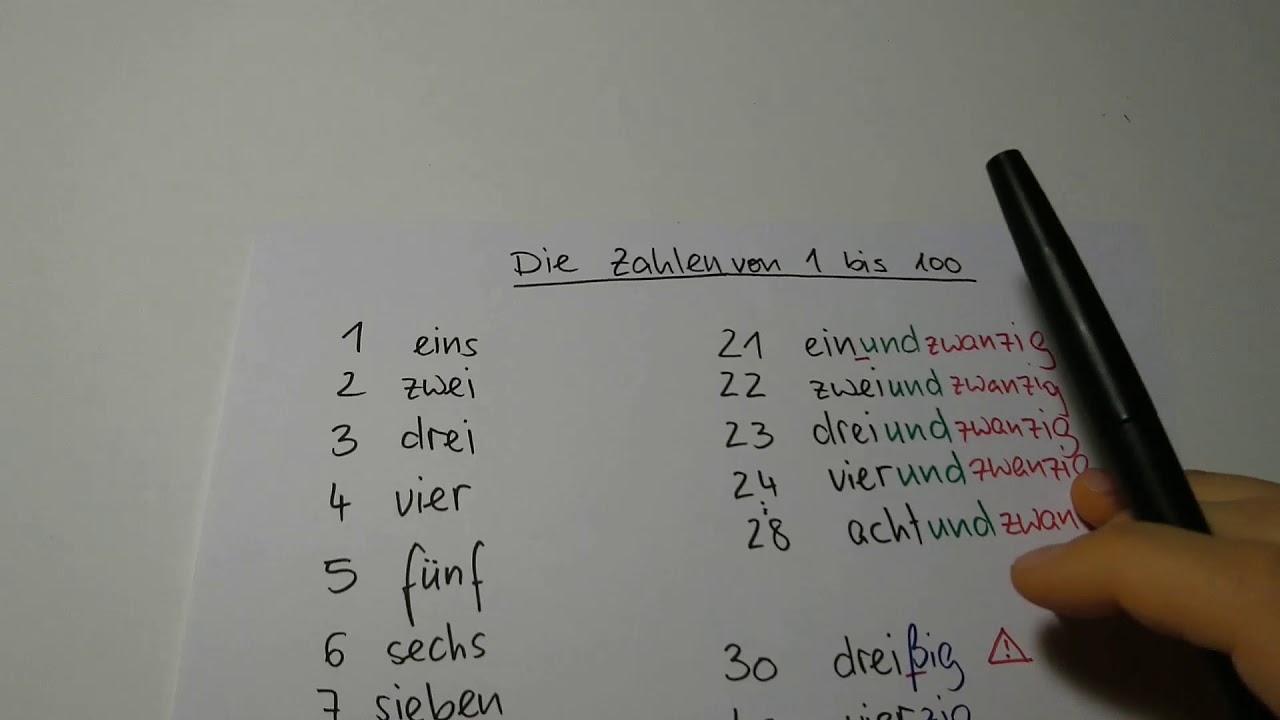 Die Zahlen von 1 bis 100
1 eins
2 zwei
3 drei
4 vier
5 fünf
6 sechs
7 sieben
21 einundzwanzig
22 zweiundzwanzig
23 dreiundzwanzig
24 vierundzwanzig
:
28 achtundzwan
30 dreißig ⚠
vierzig